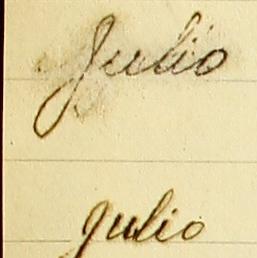 Julio
julio